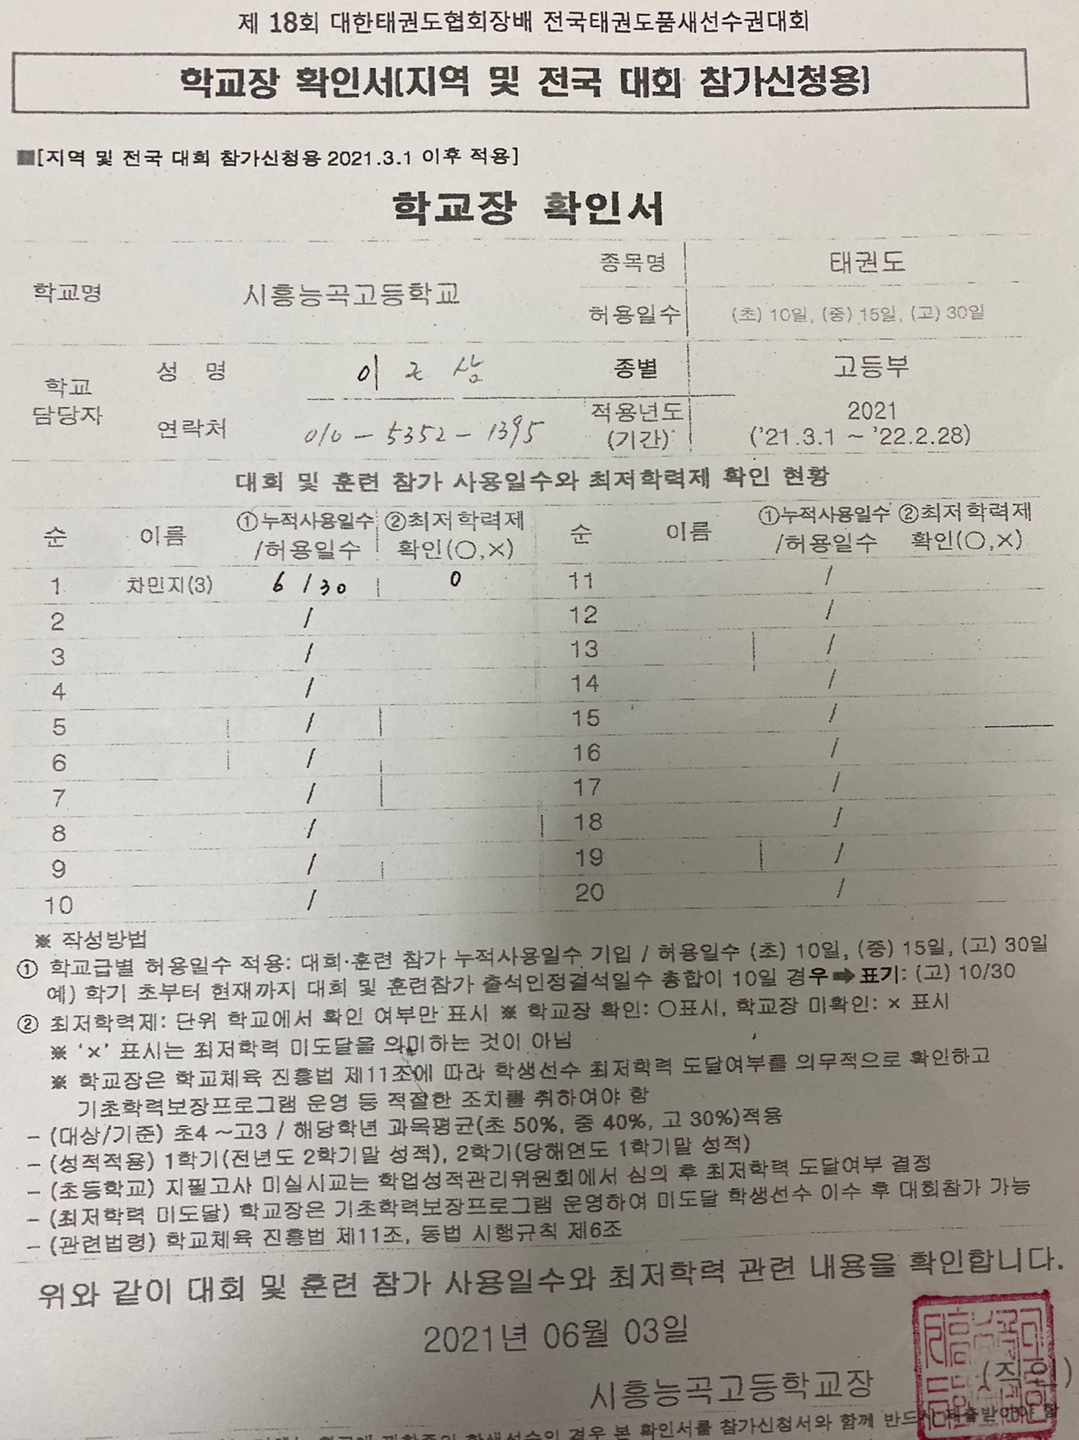 제 18회 대한태권도협회장배 전국태권도품새선수권대회
학교장 확인서(지역 및 전국 대회 참가신청용)
■[지역 및 전국 대회 참가신청용 2021.3.1 이후 적용]
학교장 확인서
학교명 시흥능곡고등학교 종목명 태권도
허용일수 (초) 10일, (중) 15일, (고) 30일
학교 담당자 성 명 이 상 종별 고등부
연락처 010-5352-1395 적용년도 (기간) 2021 ('21.3.1 ~ '22.2.28)
대회 및 훈련 참가 사용일수와 최저학력제 확인 현황
순 이름 ①누적사용일수 /허용일수 ②최저학력제 확인(○,×) 순 이름 ①누적사용일수 /허용일수 ②최저학력제 확인(○,×)
1 차민지(3) 6 / 30 0 11 /
2 / 12 /
3 / 13 /
4 / 14 /
5 / 15 /
6 / 16 /
7 / 17 /
8 / 18 /
9 / 19 /
10 / 20 /
※ 작성방법
① 학교급별 허용일수 적용: 대회·훈련 참가 누적사용일수 기입 / 허용일수 (초) 10일, (중) 15일, (고) 30일
예) 학기 초부터 현재까지 대회 및 훈련참가 출석인정결석일수 총합이 10일 경우➡표기: (고) 10/30
② 최저학력제: 단위 학교에서 확인 여부만 표시 ※ 학교장 확인: ○표시, 학교장 미확인: × 표시
※ '×' 표시는 최저학력 미도달을 의미하는 것이 아님
※ 학교장은 학교체육 진흥법 제11조에 따라 학생선수 최저학력 도달여부를 의무적으로 확인하고
기초학력보장프로그램 운영 등 적절한 조치를 취하여야 함
- (대상/기준) 초4 ~고3 / 해당학년 과목평균(초 50%, 중 40%, 고 30%)적용
- (성적적용) 1학기(전년도 2학기말 성적), 2학기(당해연도 1학기말 성적)
- (초등학교) 지필고사 미실시교는 학업성적관리위원회에서 심의 후 최저학력 도달여부 결정
- (최저학력 미도달) 학교장은 기초학력보장프로그램 운영하여 미도달 학생선수 이수 후 대회참가 가능
- (관련법령) 학교체육 진흥법 제11조, 동법 시행규칙 제6조
위와 같이 대회 및 훈련 참가 사용일수와 최저학력 관련 내용을 확인합니다.
2021년 06월 03일
시흥능곡고등학교장 (직인)
학생선수의 경우 본 확인서를 참가신청서와 함께 반드시 제출받아야 함